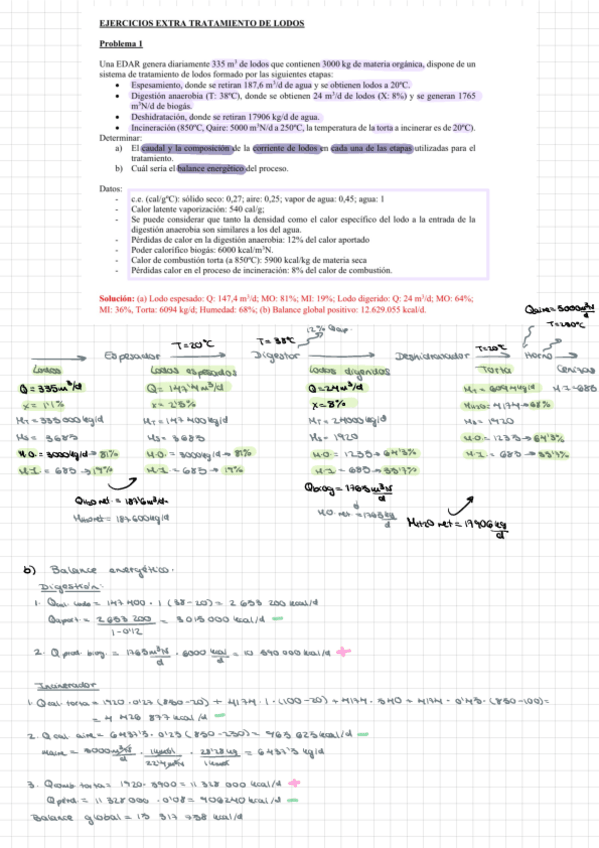 EJERCICIOS EXTRA TRATAMIENTO DE LODOS
Problema 1
Una EDAR genera diariamente 335 m³ de lodos que contienen 3000 kg de materia orgánica, dispone de un
sistema de tratamiento de lodos formado por las siguientes etapas:
• Espesamiento, donde se retiran 187,6 m³/d de agua y se obtienen lodos a 20ºC.
• Digestión anaerobia (T: 38ºC), donde se obtienen 24 m³/d de lodos (X: 8%) y se generan 1765
m³N/d de biogás.
• Deshidratación, donde se retiran 17906 kg/d de agua.
• Incineración (850ºC, Qaire: 5000 m³N/d a 250ºC), la temperatura de la torta a incinerar es de 20ºC).
Determinar:
a) El caudal y la composición de la corriente de lodos en cada una de las etapas utilizadas para el
tratamiento.
b) Cuál sería el balance energético del proceso.
Datos:
- c.e. (cal/gºC): sólido seco: 0,27; aire: 0,25; vapor de agua: 0,45; agua: 1
- Calor latente vaporización: 540 cal/g;
- Se puede considerar que tanto la densidad como el calor específico del lodo a la entrada de la
digestión anaerobia son similares a los del agua.
- Pérdidas de calor en la digestión anaerobia: 12% del calor aportado
- Poder calorífico biogás: 6000 kcal/m³N.
- Calor de combustión torta (a 850ºC): 5900 kcal/kg de materia seca
- Pérdidas calor en el proceso de incineración: 8% del calor de combustión.
Solución: (a) Lodo espesado: Q: 147,4 m³/d; MO: 81%; MI: 19%; Lodo digerido: Q: 24 m³/d; MO: 64%;
MI: 36%, Torta: 6094 kg/d; Humedad: 68%; (b) Balance global positivo: 12.629.055 kcal/d.
Qaire = 5000 m³N/d
T = 250ºC
12% Qap.
T = 20ºC T = 38ºC T = 20ºC
Espesador Digestor Deshidratador Horno
Lodos Lodos espesados Lodos digeridos Torta Cenizas
Q = 335 m³/d Q = 147'4 m³/d Q = 24 m³/d MT = 6094 kg/d MI = 685
X = 1'1% X = 2'5% X = 8% MH2O = 4174 → 68%
MT = 335000 kg/d MT = 147400 kg/d MT = 24000 kg/d MS = 1920
MS = 3685 MS = 3685 MS = 1920 M.O. = 1235 → 64'3%
M.O. = 3000 kg/d → 81% M.O. = 3000 kg/d → 81% M.O. = 1235 → 64'3% M.I. = 685 → 35'7%
M.I. = 685 → 19% M.I. = 685 → 19% M.I. = 685 → 35'7%
QH2O ret. = 187'6 m³/d Qbiog = 1765 m³N/d
MH2O ret = 187600 kg/d M.O ret = 1765 kg/d MH2O ret = 17906 kg/d
b) Balance energético.
Digestión:
1. Qcal. lodo = 147 400 · 1 (38-20) = 2 653 200 kcal/d
Qaport = 2 653 200 / 1-0'12 = 3 015 000 kcal/d −
2. Q prod. biog. = 1765 m³N/d · 6000 kcal/m³N = 10 590 000 kcal/d +
Incinerador
1. Qcal. torta = 1920 · 0'27 (850-20) + 4174 · 1 · (100-20) + 4174 · 540 + 4174 · 0'45 · (850-100) =
= 4 426 877 kcal/d −
2. Q cal. aire = 6437'5 · 0'25 (850-250) = 965 625 kcal/d −
maire = 5000 m³N/d · 1 kmol/22'4 m³N · 28'28 kg/1 kmol = 6437'5 kg/d
3. Qcomb torta = 1920 · 5900 = 11 328 000 kcal/d +
Qpérd = 11 328 000 · 0'08 = 906240 kcal/d −
Balance global = 13 317 758 kcal/d